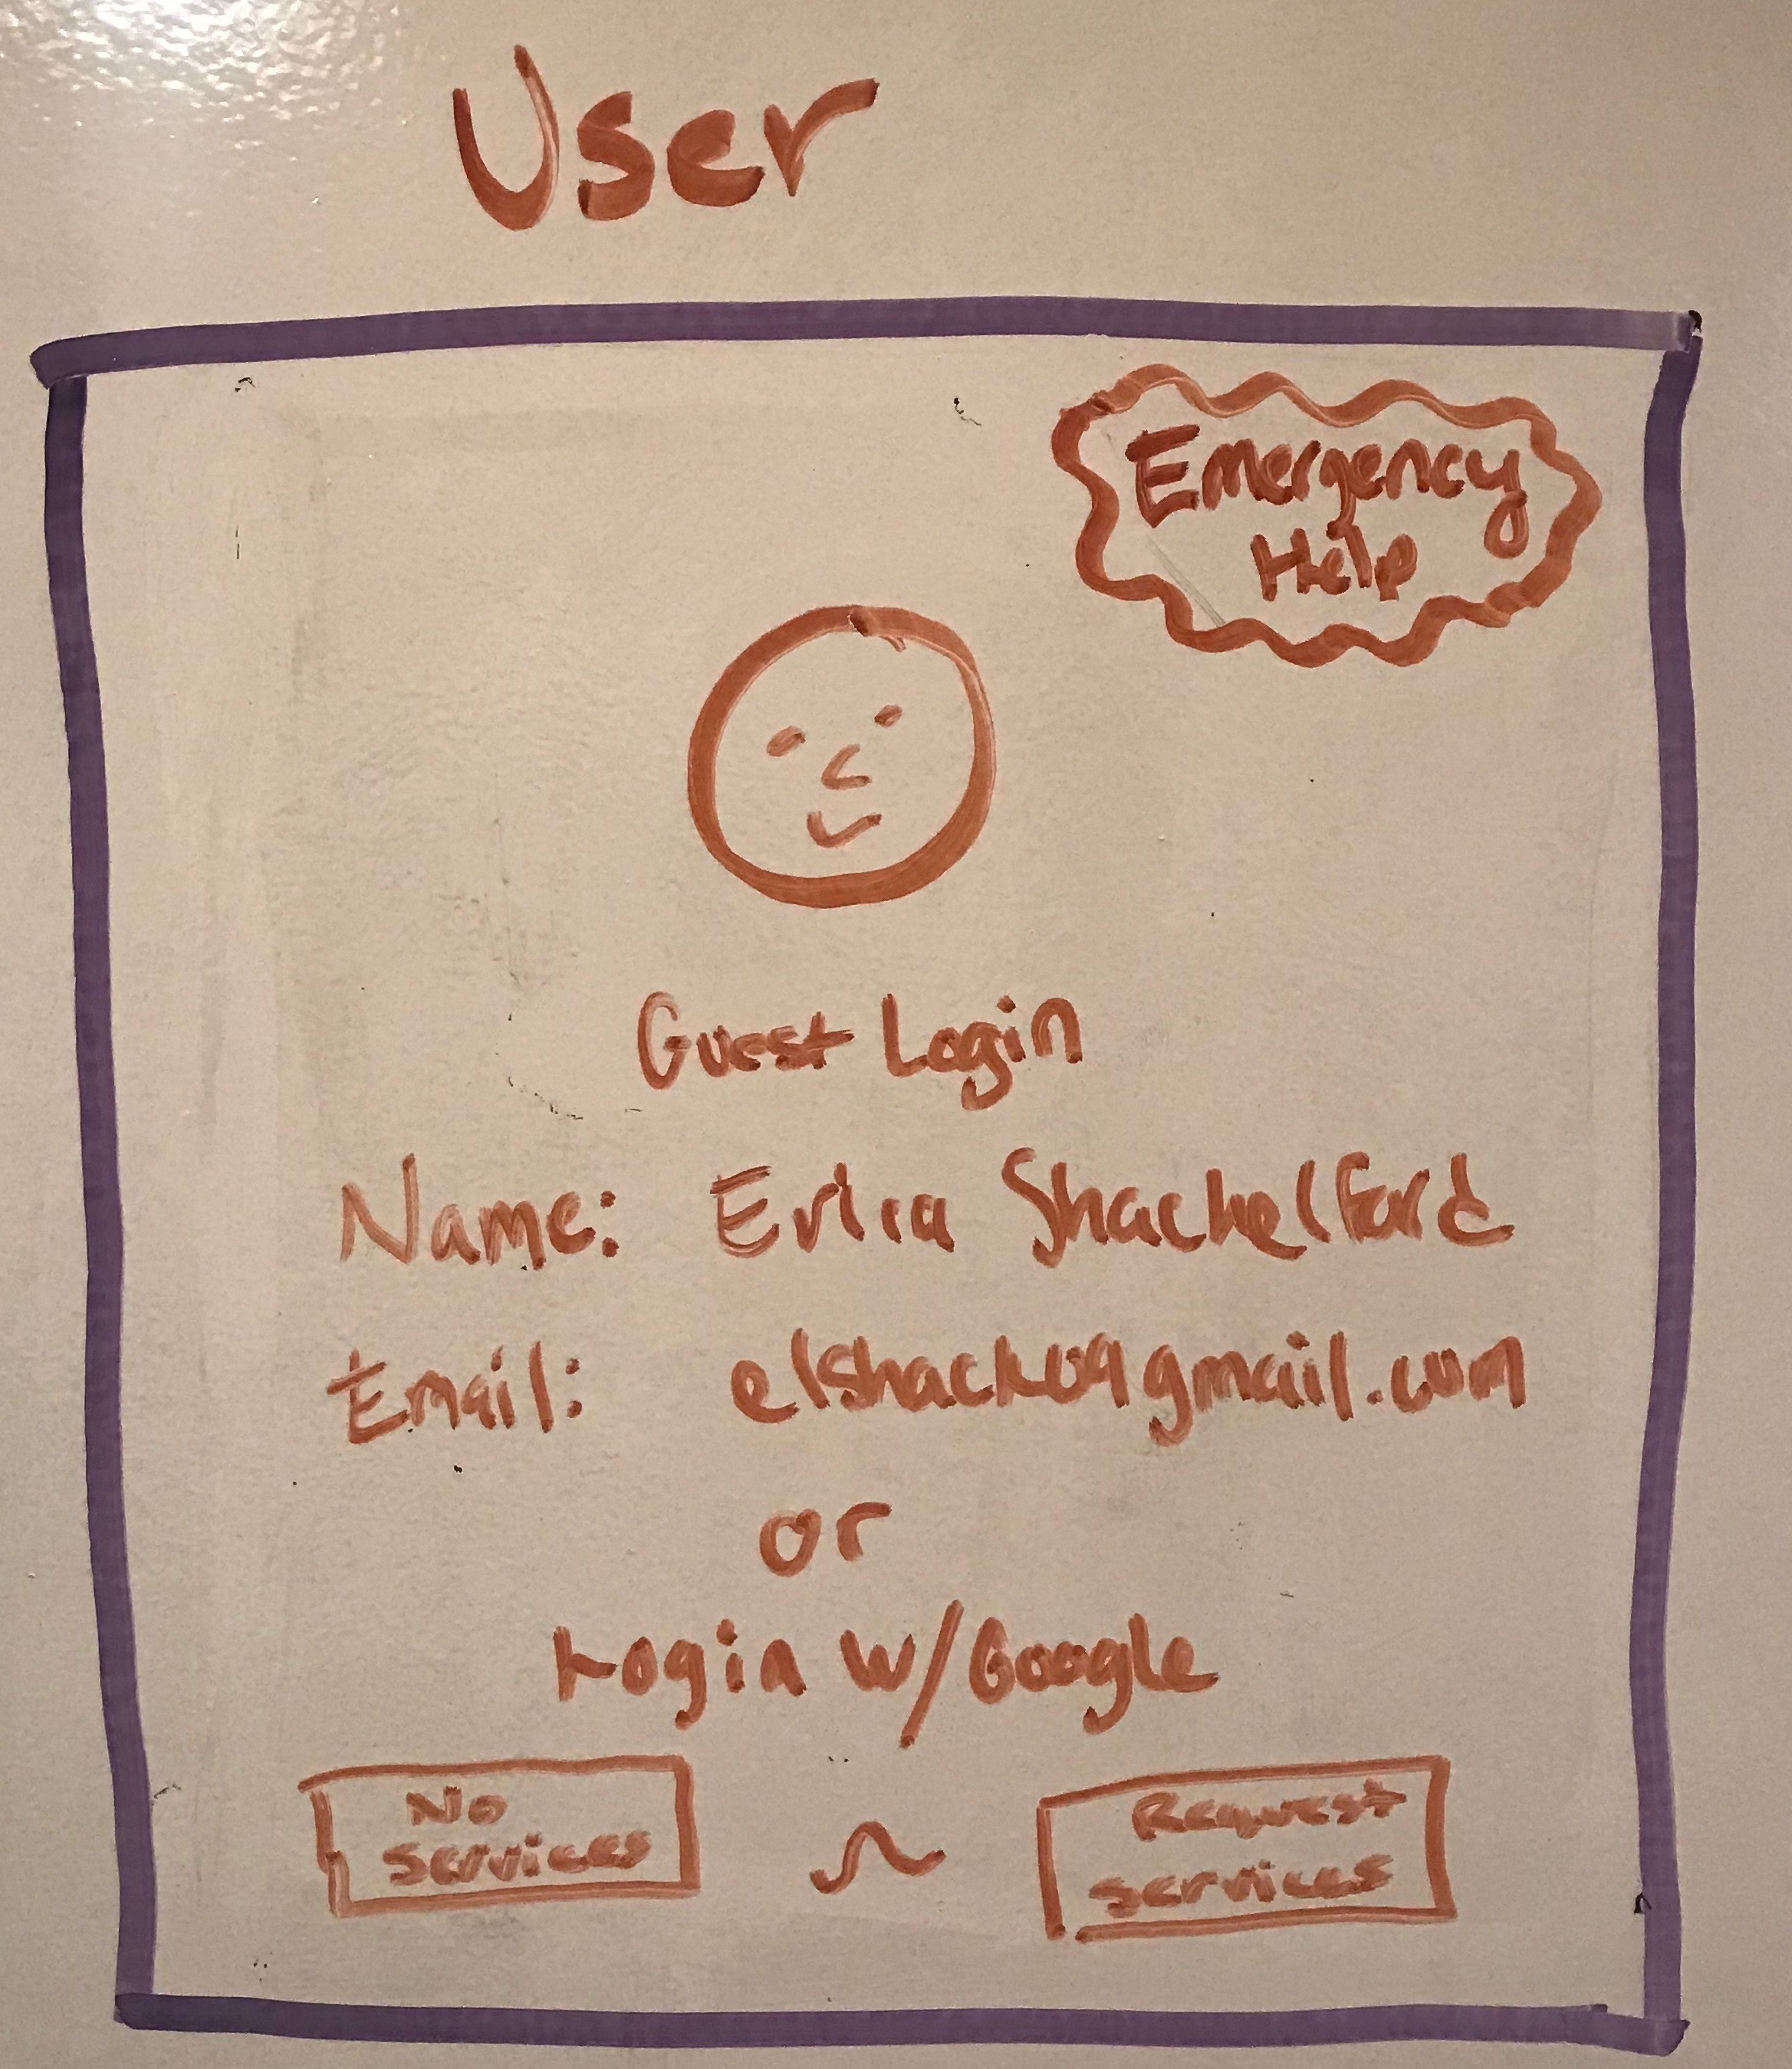 User
Emergency
Help
Guest Login
Name: Erica Shackelford
Email: elshack09gmail.com
or
Login w/Google
No
services
Request
services